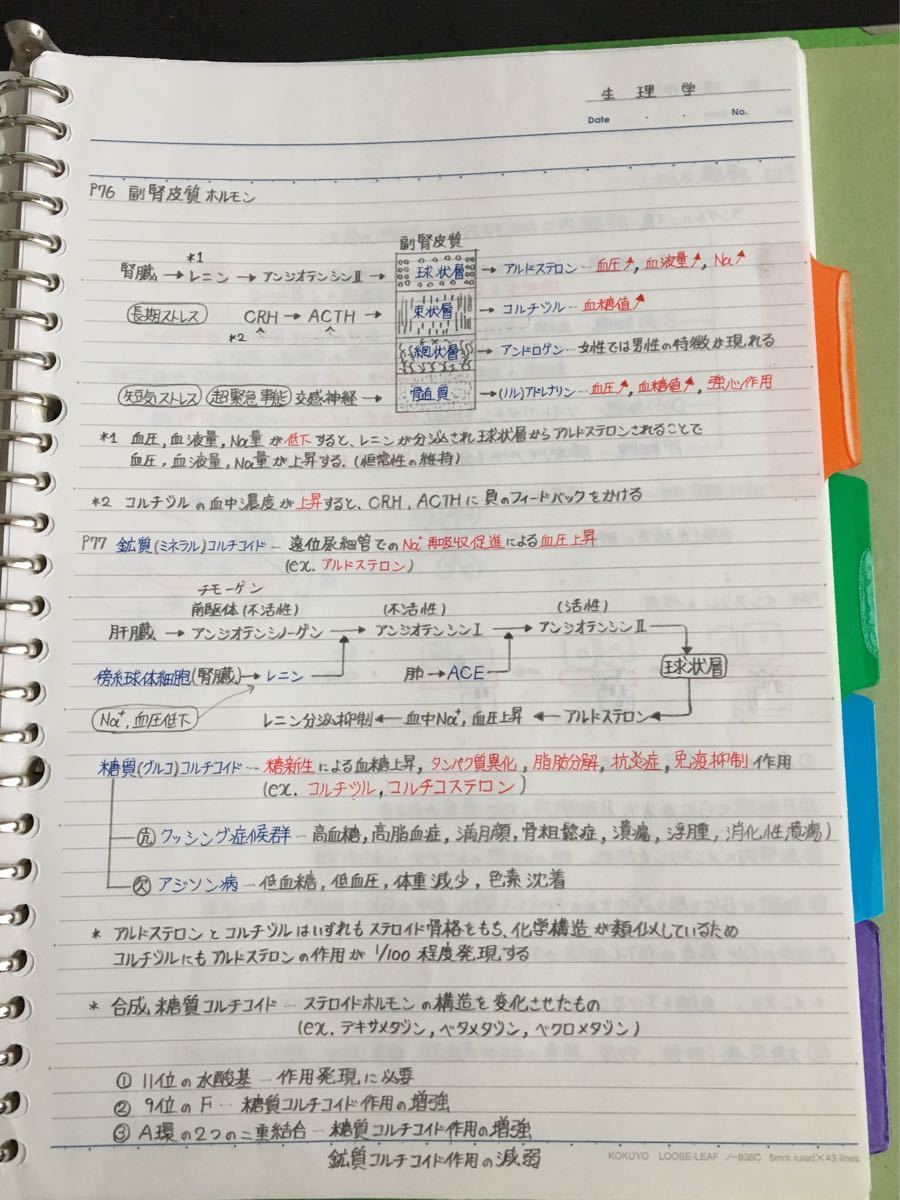 生理学
Date ・ ・ No.
P76 副腎皮質ホルモン
副腎皮質
*1
腎臓 → レニン → アンジオテンシンⅡ → 球状層 → アルドステロン … 血圧↗, 血液量↗, Na↗
長期ストレス CRH → ACTH → 束状層 → コルチゾル … 血糖値↗
*2
網状層 → アンドロゲン … 女性では男性の特徴が現れる
短気ストレス 超緊急事態 交感神経 → 髄質 → (ノル)アドレナリン … 血圧↗, 血糖値↗, 強心作用
*1 血圧, 血液量, Na量が低下すると、レニンが分泌され球状層からアルドステロンされることで
血圧, 血液量, Na量が上昇する. (恒常性の維持)
*2 コルチゾルの血中濃度が上昇すると、CRH, ACTHに負のフィードバックをかける
P77 鉱質(ミネラル)コルチコイド … 遠位尿細管でのNa⁺再吸収促進による血圧上昇
(ex. アルドステロン)
チモーゲン
前駆体(不活性) (不活性) (活性)
肝臓 → アンジオテンシノーゲン → アンジオテンシンⅠ → アンジオテンシンⅡ
傍糸球体細胞(腎臓) → レニン 肺 → ACE 球状層
Na⁺, 血圧低下 レニン分泌抑制 ← 血中Na⁺, 血圧上昇 ← アルドステロン
糖質(グルコ)コルチコイド … 糖新生による血糖上昇, タンパク質異化, 脂肪分解, 抗炎症, 免疫抑制作用
(ex. コルチゾル, コルチコステロン)
亢 クッシング症候群 … 高血糖, 高脂血症, 満月顔, 骨粗鬆症, 潰瘍, 浮腫, 消化性潰瘍)
欠 アジソン病 … 低血糖, 低血圧, 体重減少, 色素沈着
* アルドステロンとコルチゾルはいずれもステロイド骨格をもち、化学構造が類似しているため
コルチゾルにもアルドステロンの作用が1/100程度発現する
* 合成糖質コルチコイド … ステロイドホルモンの構造を変化させたもの
(ex. デキサメタゾン, ベタメタゾン, ベクロメタゾン)
① 11位の水酸基 … 作用発現に必要
② 9位のF … 糖質コルチコイド作用の増強
③ A環の2つの二重結合 … 糖質コルチコイド作用の増強
鉱質コルチコイド作用の減弱
KOKUYO LOOSE-LEAF ノ-836C 6mm ruled×43 lines